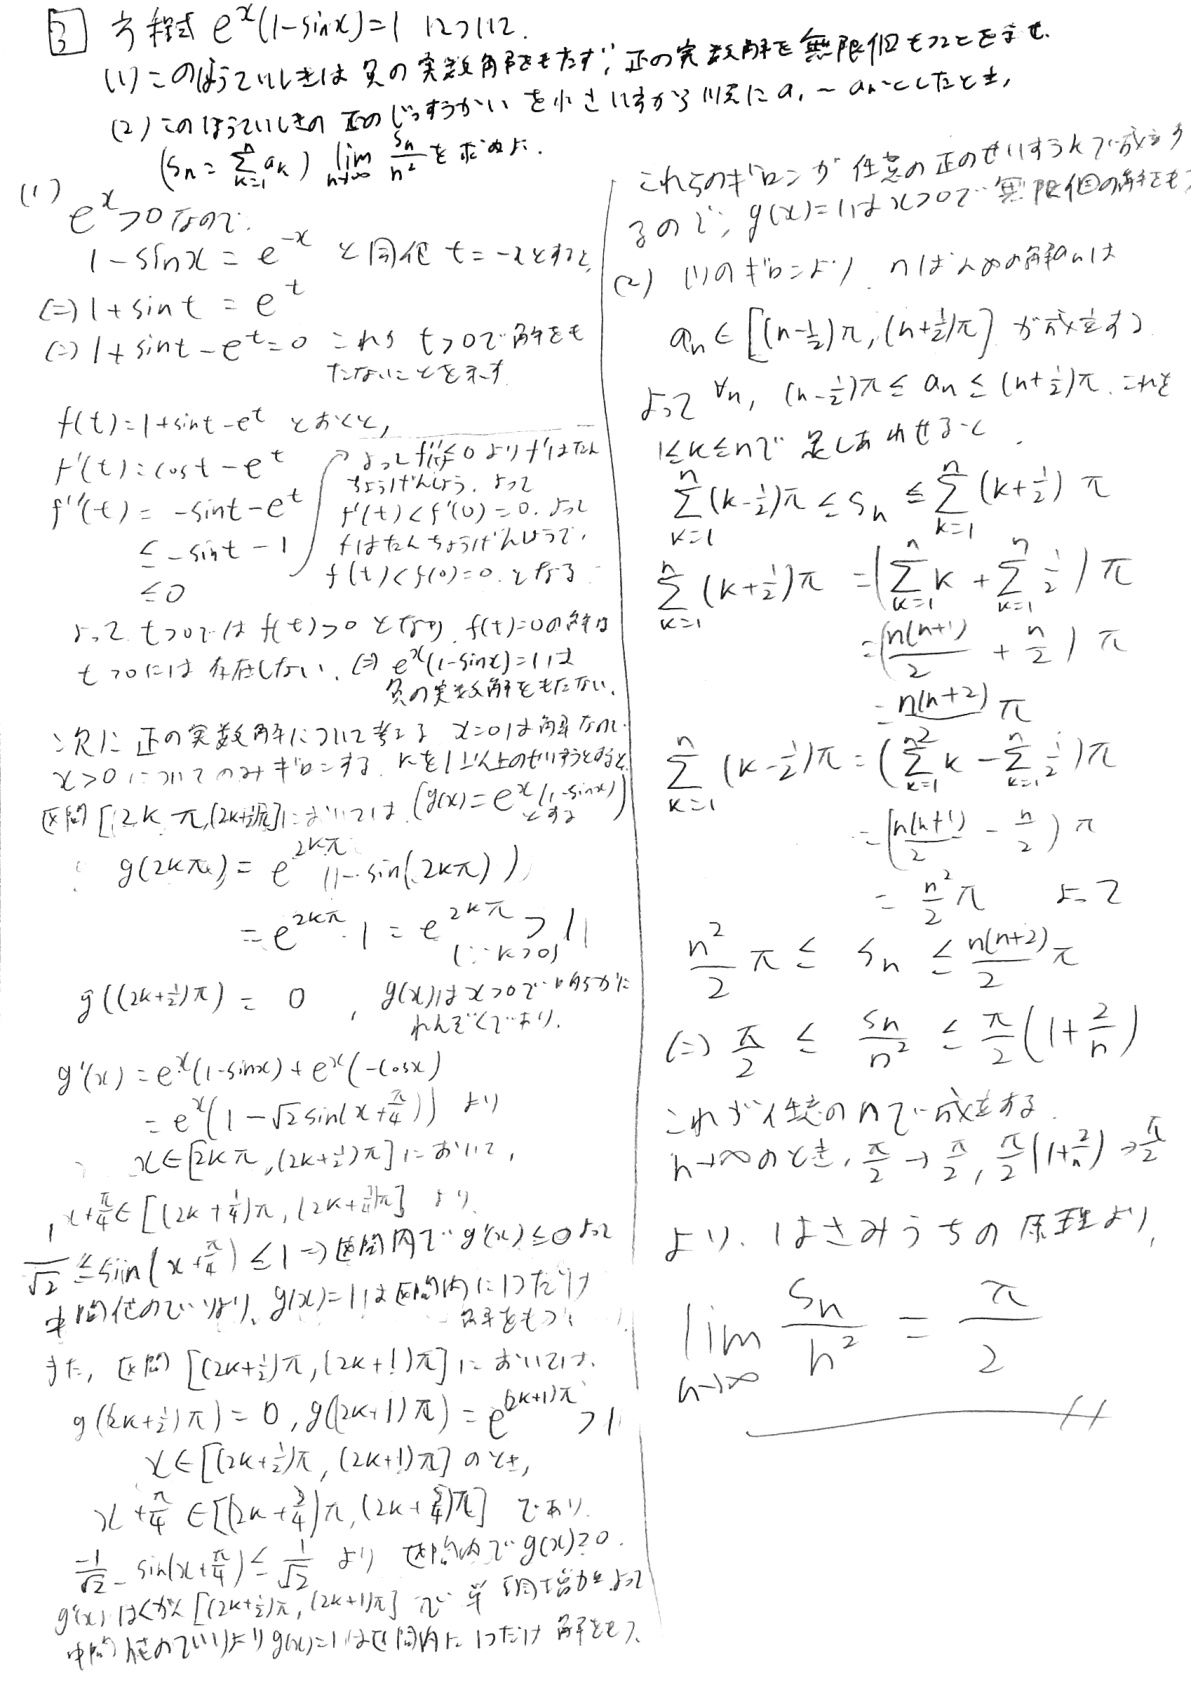 3 方程式 e^x(1-sinx)=1 について.
(1) このほうていしきは 負の実数解をもたず, 正の実数解を無限個もつことを示せ.
(2) このほうていしきの 正のじっすうかい を小さいほうから 順に a₁ ~ aₙとしたとき,
(Sₙ = Σ_{k=1}^{n} a_k) lim_{n→∞} Sₙ/n² を求めよ.
(1)
e^x>0なので.
1-sinx = e^{-x} と同値 t=-xとすると,
⇔ 1+sint = e^t
⇔ 1+sint-e^t=0 これが t>0で解をも
たないことを示す
f(t)=1+sint-e^t とおくと,
f'(t)=cost-e^t
f''(t)= -sint-e^t
≤ -sint-1
≤0
よって f''≤0 より f'はたん
ちょうげんしょう. よって
f'(t)<f'(0)=0. よって
fはたんちょうげんしょうで,
f(t)<f(0)=0. となる
よって t>0では f(t)>0 となり, f(t)=0の解は
t>0には存在しない. ⇔ e^x(1-sinx)=1は
負の実数解をもたない.
次に 正の実数解について考える x=0は解なので
x>0についてのみギロンする. kを1以上のせいすうとすると,
区間[2kπ,(2k+½)π]においては, (g(x)=e^x(1-sinx)
とする)
g(2kπ)= e^{2kπ}(1-sin(2kπ))
= e^{2kπ}·1 = e^{2kπ} > 1
(∵k>0)
g((2k+½)π) = 0 , g(x)はx>0で明らかに
れんぞくであり.
g'(x) = e^x(1-sinx)+e^x(-cosx)
= e^x(1-√2sin(x+π/4)) より
x∈[2kπ,(2k+½)π]において,
x+π/4∈[(2k+¼)π,(2k+¾)π] より
1/√2 ≤ sin(x+π/4) ≤ 1 ⇒区間内で g'(x)≤0 よって
中間値のていりより, g(x)=1は区間内に1つだけ
解をもつ.
また, 区間[(2k+½)π,(2k+1)π]においては,
g((2k+½)π)=0, g((2k+1)π)=e^{(2k+1)π}>1
x∈[(2k+½)π,(2k+1)π]のとき,
x+π/4∈[(2k+¾)π,(2k+5/4)π] であり
-1/√2 ≤ sin(x+π/4) ≤ 1/√2 より 区間内で g(x)≥0.
g'(x)はくかん[(2k+½)π,(2k+1)π]で 単調増加 よって
中間値のていりより g(x)=1は区間内に1つだけ 解をもつ.
これらのギロンが 任意の正のせいすうkで成立す
るので, g(x)=1はx>0で無限個の解をも
(2) (1)のギロンより, n ばんめの解aₙは
aₙ∈[(n-½)π,(n+½)π] が成立する
よって ∀n, (n-½)π ≤ aₙ ≤ (n+½)π. これを
1≤k≤nで 足しあわせると.
Σ_{k=1}^{n}(k-½)π ≤ Sₙ ≤ Σ_{k=1}^{n}(k+½)π
Σ_{k=1}^{n}(k+½)π = (Σ_{k=1}^{n}k + Σ_{k=1}^{n}½)π
= (n(n+1)/2 + n/2)π
= n(n+2)/ π
Σ_{k=1}^{n}(k-½)π = (Σ_{k=1}^{n}k - Σ_{k=1}^{n}½)π
= (n(n+1)/2 - n/2)π
= n²/2 π よって
n²/2 π ≤ Sₙ ≤ n(n+2)/2 π
⇔ π/2 ≤ Sₙ/n² ≤ π/2(1+2/n)
これが任意のnで成立する.
n→∞のとき, π/2→π/2, π/2(1+2/n)→π/2
より. はさみうちの原理より,
lim_{n→∞} Sₙ/n² = π/2